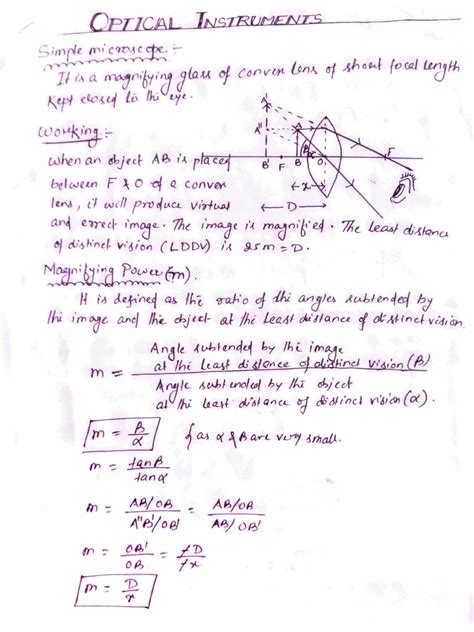 OPTICAL INSTRUMENTS
Simple microscope :-
It is a magnifying glass of convex lens of short focal length
kept closed to the eye.
Working :-
when an object AB is placed
between F & O of a convex
lens, it will produce virtual
and errect image. The image is magnified. The Least distance
of distinct vision (LDDV) is 25m = D.
A'
A''
A
B'
F
B
α
O
F
x
D
Magnifying Power (m).
It is defined as the ratio of the angles subtended by
the image and the object at the Least distance of distinct vision
m = Angle subtended by the image
at the least distance of distinct vision (β)
Angle subtended by the object
at the least distance of distinct vision (α).
m = β/α {as α & β are very small.
m = tanβ/tanα
m = AB/OB / A''B'/OB' = AB/OB / AB/OB'
m = OB'/OB = +D/+x
m = D/x